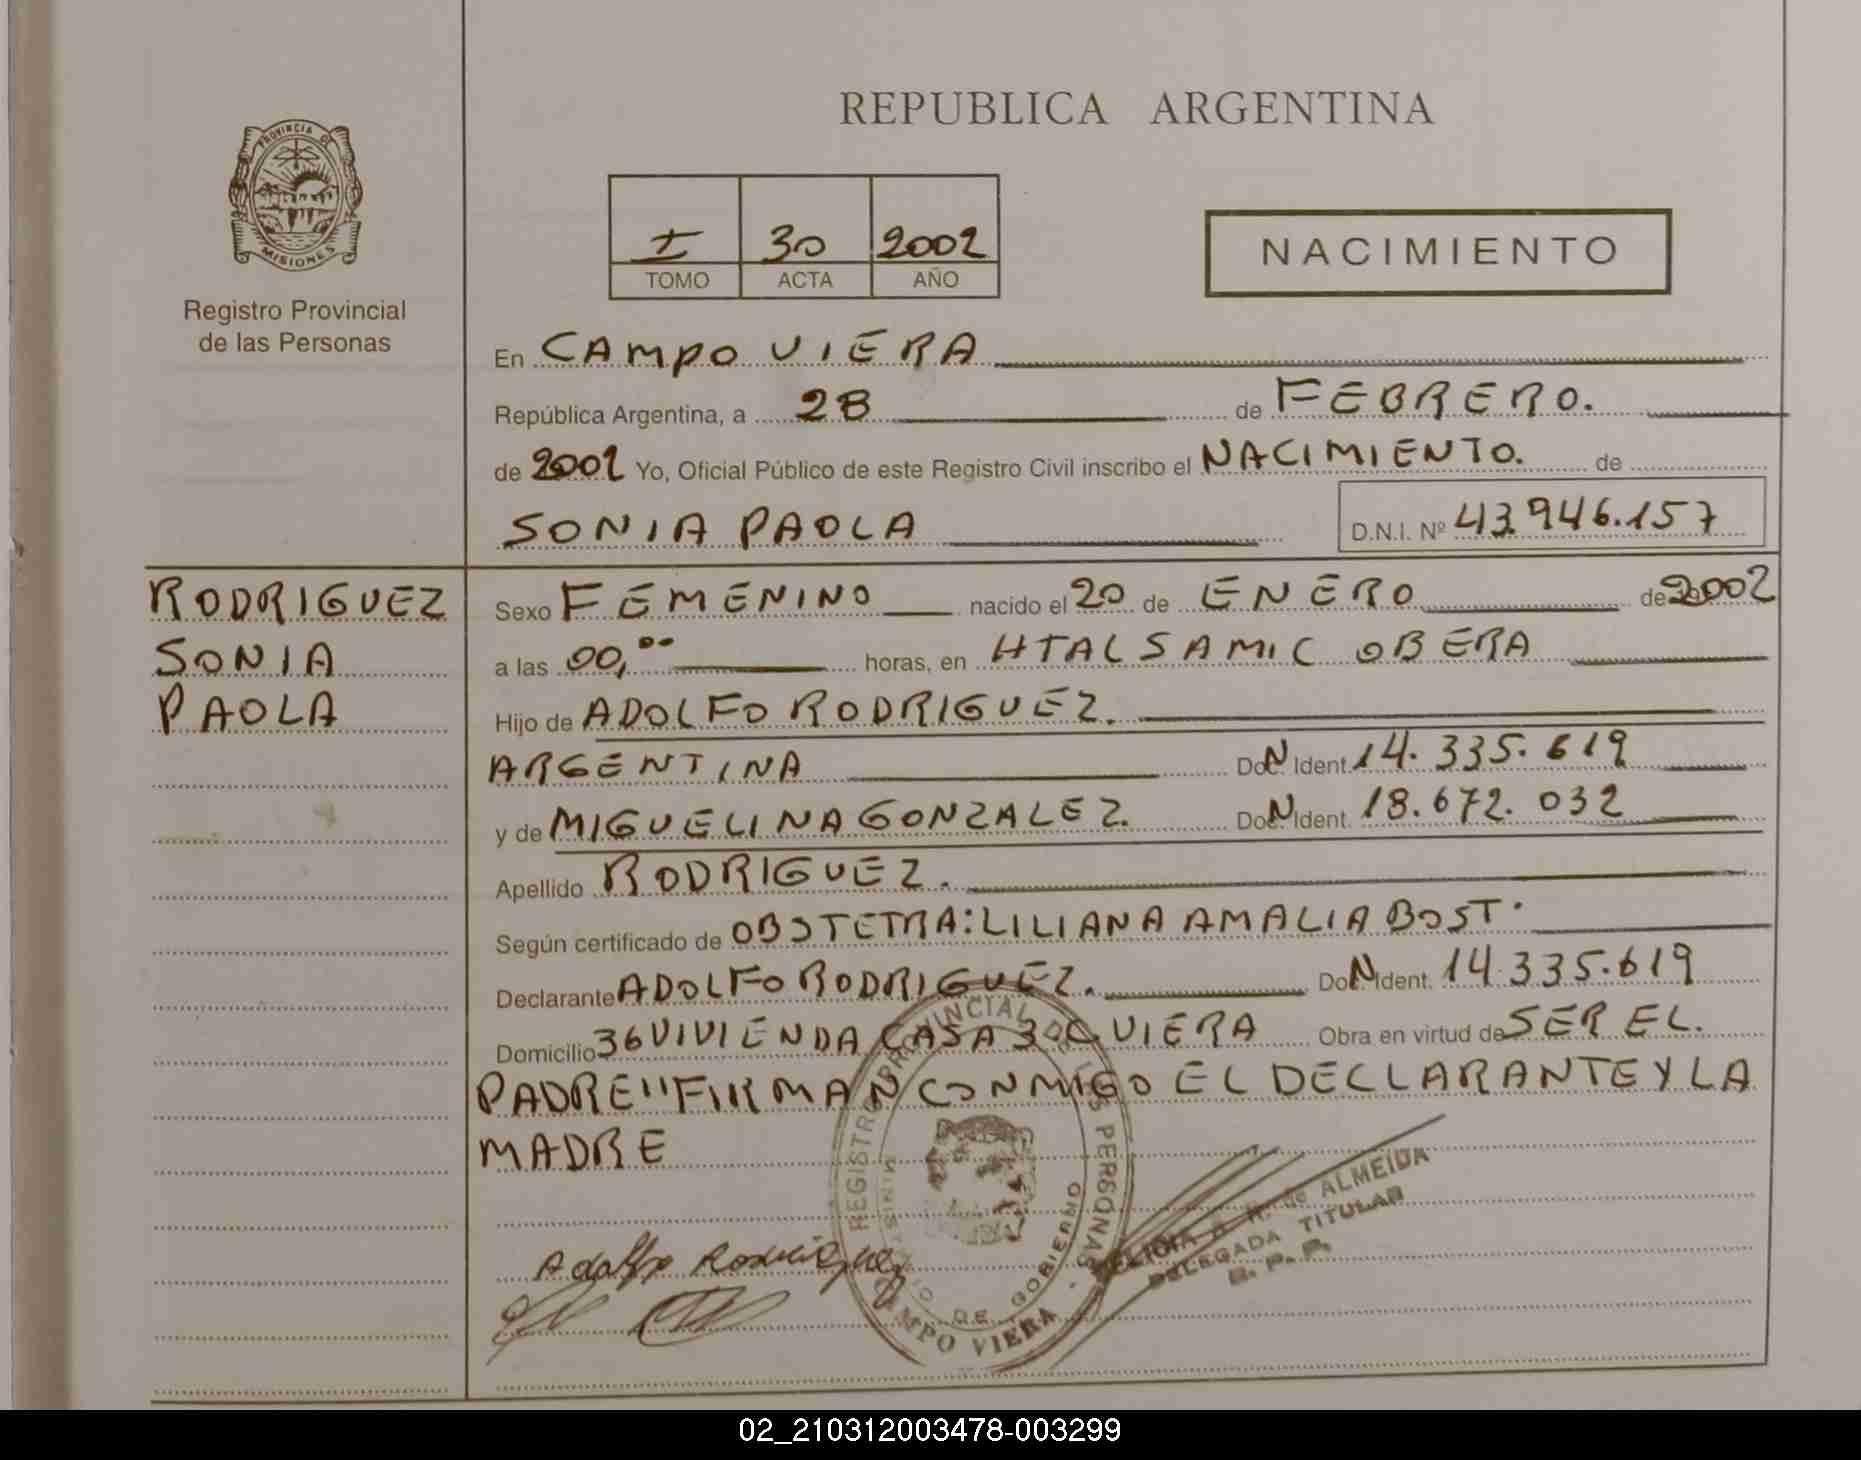 REPUBLICA ARGENTINA
PROVINCIA DE
MISIONES
Registro Provincial
de las Personas
I 30 2002
TOMO ACTA AÑO
NACIMIENTO
En CAMPO VIERA
República Argentina, a 28 de FEBRERO.
de 2002 Yo, Oficial Público de este Registro Civil inscribo el NACIMIENTO. de
SONIA PAOLA D.N.I. Nº 43.946.157
RODRIGUEZ
SONIA
PAOLA
Sexo FEMENINO nacido el 20 de ENERO de 2002
a las 00,00 horas, en HTAL SAMIC OBERA
Hijo de ADOLFO RODRIGUEZ.
ARGENTINA Doc. N Ident. 14.335.619
y de MIGUELINA GONZALEZ. Doc. N Ident. 18.672.032
Apellido RODRIGUEZ.
Según certificado de OBSTETRA: LILIANA AMALIA BOST.
Declarante ADOLFO RODRIGUEZ. Doc. N Ident. 14.335.619
Domicilio 36 VIVIENDA CASA 30 C VIERA Obra en virtud de SER EL.
PADRE" FIRMAN CONMIGO EL DECLARANTE Y LA
MADRE
Adolfo Rodriguez
REGISTRO PROVINCIAL DE LAS PERSONAS
MINISTERIO DE GOBIERNO
CAMPO VIERA
de ALMEIDA
DELEGADA TITULAR
R. P. P.
02_210312003478-003299